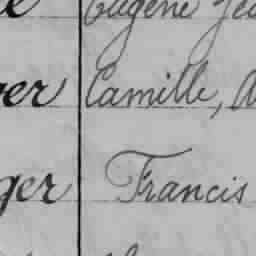 Eugène
ger Camille,
ger Francis